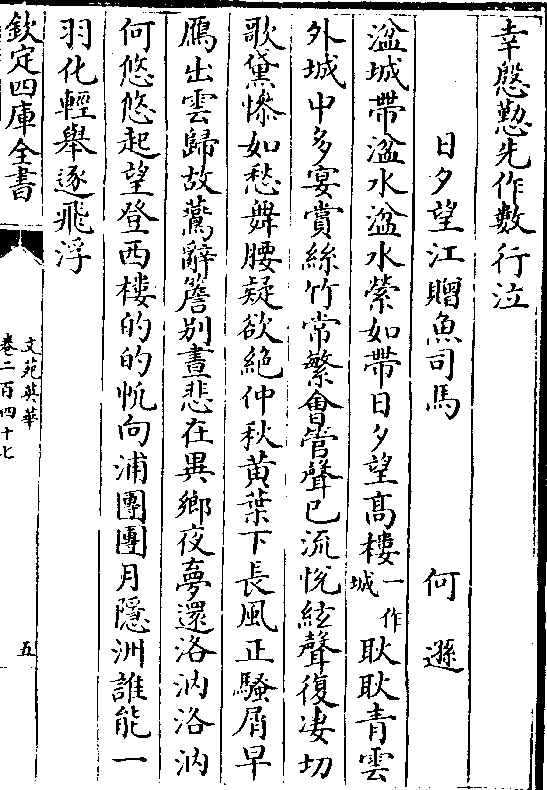 幸慇懃先作數行泣
日夕望江贈魚司馬　何遜
湓城帶湓水湓水縈如帶日夕望髙樓一作城耿耿青雲
外城中多宴賞絲竹常繁會管聲已流悅絃聲復凄切
歌黛慘如愁舞腰疑欲絶仲秋黄葉下長風正騷屑早
鴈出雲歸故鷰辭簷别晝悲在異鄉夜夢還洛汭洛汭
何悠悠起望登西樓的的帆向浦團團月隱洲誰能一
羽化輕舉逐飛浮
欽定四庫全書
文苑英華
卷二百四十七
五